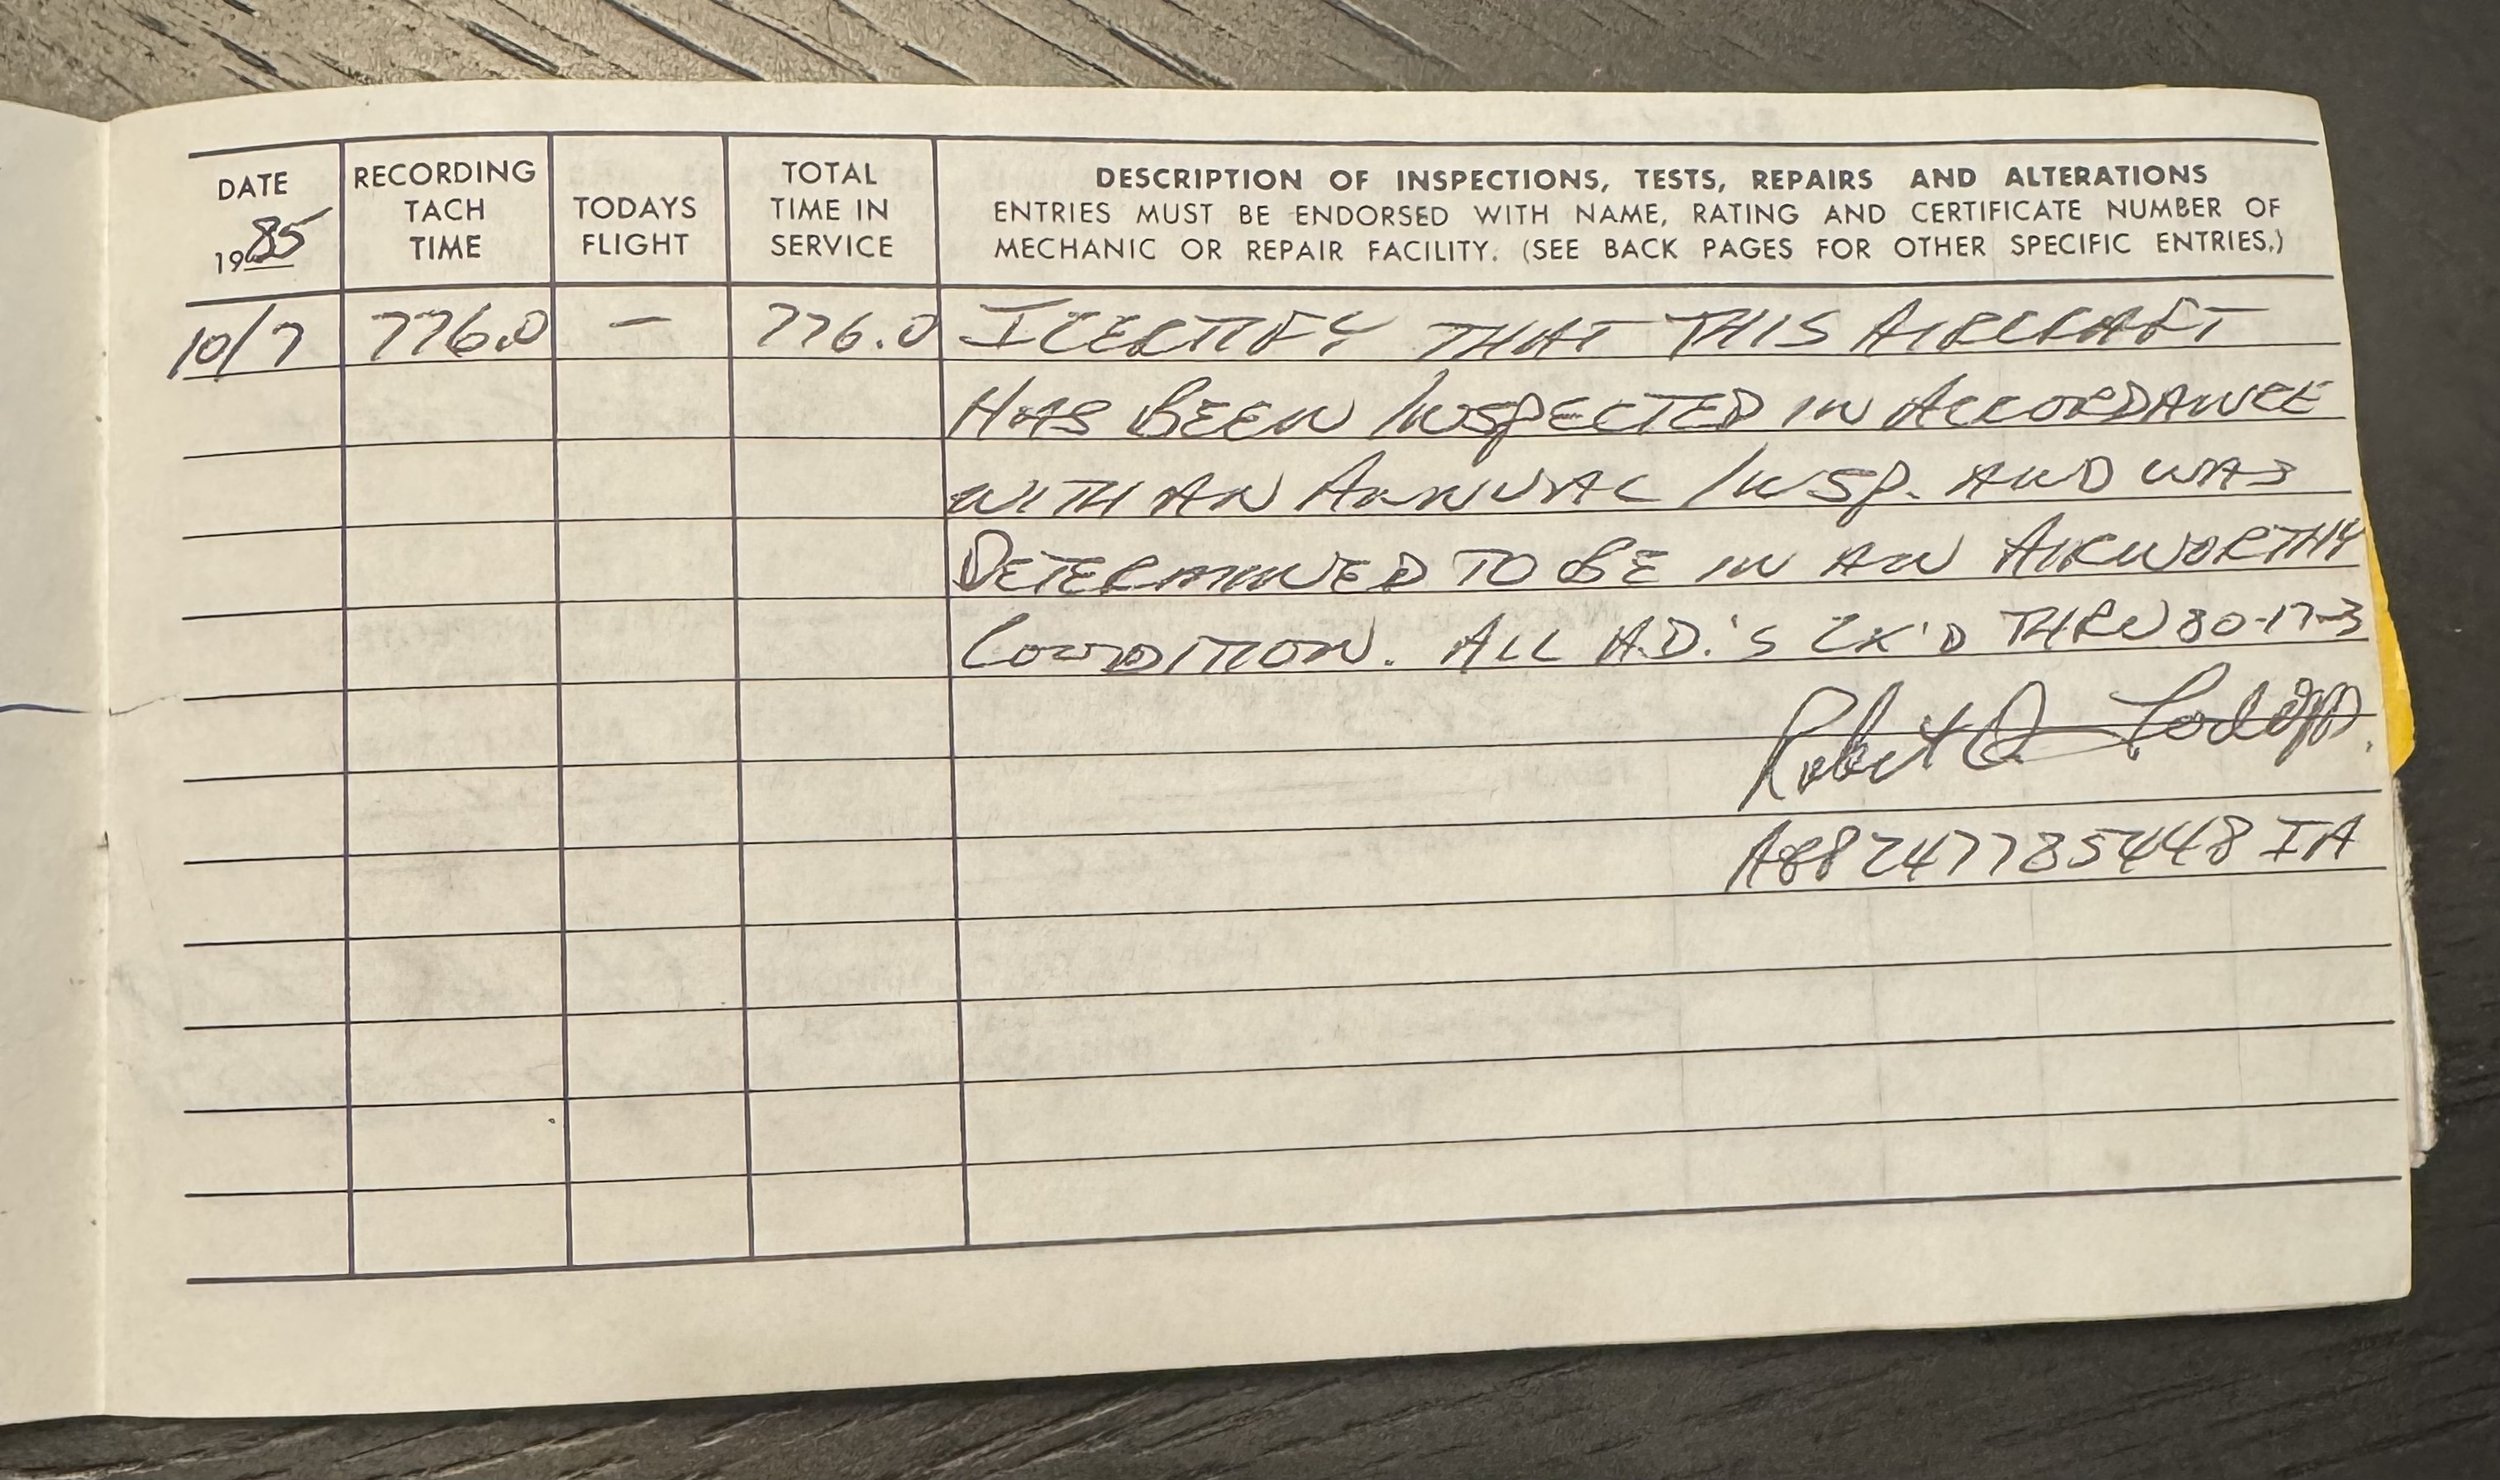 DATE
1985
RECORDING
TACH
TIME
TODAYS
FLIGHT
TOTAL
TIME IN
SERVICE
DESCRIPTION OF INSPECTIONS, TESTS, REPAIRS AND ALTERATIONS
ENTRIES MUST BE ENDORSED WITH NAME, RATING AND CERTIFICATE NUMBER OF
MECHANIC OR REPAIR FACILITY. (SEE BACK PAGES FOR OTHER SPECIFIC ENTRIES.)
10/7 776.0 — 776.0 I CERTIFY THAT THIS AIRCRAFT
HAS BEEN INSPECTED IN ACCORDANCE
WITH AN ANNUAL INSP. AND WAS
DETERMINED TO BE IN AN AIRWORTHY
CONDITION. ALL A.D.'S CK'D THRU 80-17-3
Robert
A&P 247785448 IA